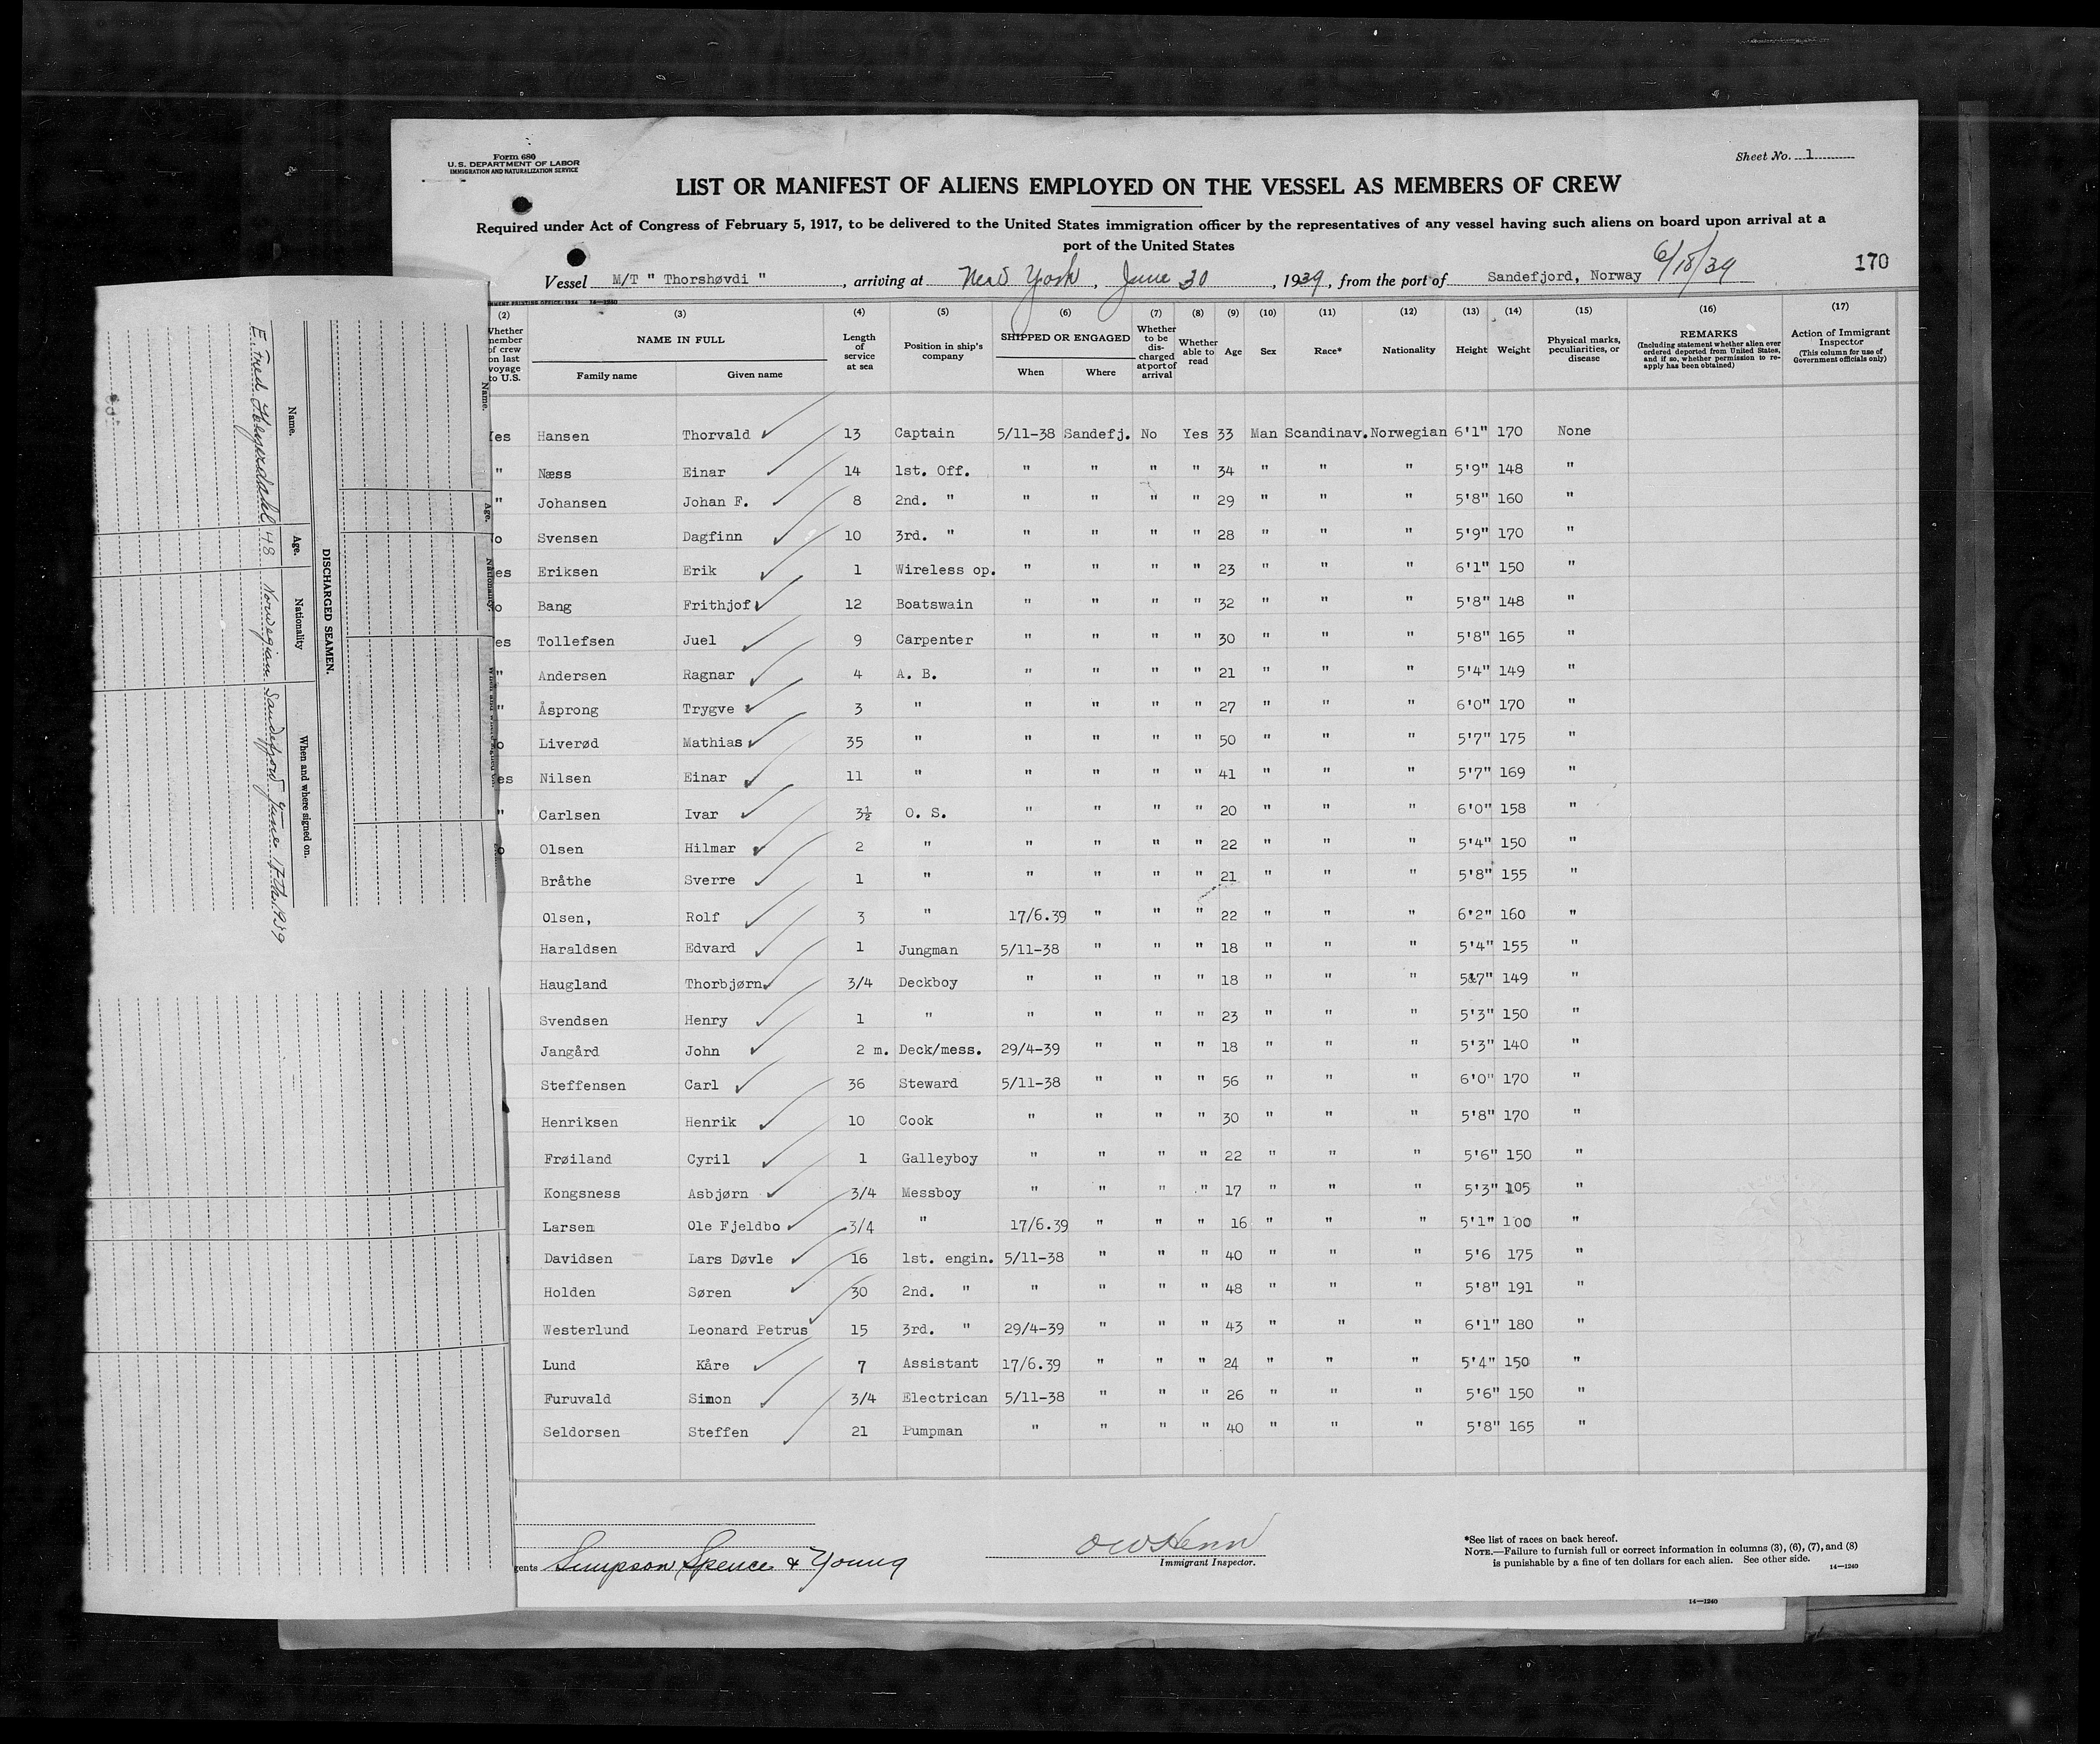 Form 680
U. S. DEPARTMENT OF LABOR
IMMIGRATION AND NATURALIZATION SERVICE
Sheet No. 1
LIST OR MANIFEST OF ALIENS EMPLOYED ON THE VESSEL AS MEMBERS OF CREW
Required under Act of Congress of February 5, 1917, to be delivered to the United States immigration officer by the representatives of any vessel having such aliens on board upon arrival at a
port of the United States
Vessel M/T " Thorshøvdi " , arriving at New York , June 30 , 1939 , from the port of Sandefjord, Norway 6/18/39 170
(2) (3) (4) (5) (6) (7) (8) (9) (10) (11) (12) (13) (14) (15) (16) (17)
Whether member of crew on last voyage to U.S.
NAME IN FULL
Family name Given name
Length of service at sea
Position in ship's company
SHIPPED OR ENGAGED
When Where
Whether to be discharged at port of arrival
Whether able to read
Age Sex Race* Nationality Height Weight
Physical marks, peculiarities, or disease
REMARKS
(Including statement whether alien ever ordered deported from United States, and if so, whether permission to reapply has been obtained)
Action of Immigrant Inspector
(This column for use of Government officials only)
es Hansen Thorvald 13 Captain 5/11-38 Sandefj. No Yes 33 Man Scandinav. Norwegian 6'1" 170 None
" Næss Einar 14 1st. Off. " " " " 34 " " " 5'9" 148 "
" Johansen Johan F. 8 2nd. " " " " " 29 " " " 5'8" 160 "
o Svensen Dagfinn 10 3rd. " " " " " 28 " " " 5'9" 170 "
es Eriksen Erik 1 Wireless op. " " " " 23 " " " 6'1" 150 "
o Bang Frithjof 12 Boatswain " " " " 32 " " " 5'8" 148 "
es Tollefsen Juel 9 Carpenter " " " " 30 " " " 5'8" 165 "
" Andersen Ragnar 4 A. B. " " " " 21 " " " 5'4" 149 "
" Åsprong Trygve 3 " " " " " 27 " " " 6'0" 170 "
o Liverød Mathias 35 " " " " " 50 " " " 5'7" 175 "
es Nilsen Einar 11 " " " " " 41 " " " 5'7" 169 "
" Carlsen Ivar 3½ O. S. " " " " 20 " " " 6'0" 158 "
o Olsen Hilmar 2 " " " " " 22 " " " 5'4" 150 "
Bråthe Sverre 1 " " " " " 21 " " " 5'8" 155 "
Olsen, Rolf 3 " 17/6.39 " " " 22 " " " 6'2" 160 "
Haraldsen Edvard 1 Jungman 5/11-38 " " " 18 " " " 5'4" 155 "
Haugland Thorbjørn 3/4 Deckboy " " " " 18 " " " 5'7" 149 "
Svendsen Henry 1 " " " " " 23 " " " 5'3" 150 "
Jangård John 2 m. Deck/mess. 29/4-39 " " " 18 " " " 5'3" 140 "
Steffensen Carl 36 Steward 5/11-38 " " " 56 " " " 6'0" 170 "
Henriksen Henrik 10 Cook " " " " 30 " " " 5'8" 170 "
Frøiland Cyril 1 Galleyboy " " " " 22 " " " 5'6" 150 "
Kongsness Asbjørn 3/4 Messboy " " " " 17 " " " 5'3" 105 "
Larsen Ole Fjeldbo 3/4 " 17/6.39 " " " 16 " " " 5'1" 100 "
Davidsen Lars Døvle 16 1st. engin. 5/11-38 " " " 40 " " " 5'6 175 "
Holden Søren 30 2nd. " " " " " 48 " " " 5'8" 191 "
Westerlund Leonard Petrus 15 3rd. " 29/4-39 " " " 43 " " " 6'1" 180 "
Lund Kåre 7 Assistant 17/6.39 " " " 24 " " " 5'4" 150 "
Furuvald Simon 3/4 Electrican 5/11-38 " " " 26 " " " 5'6" 150 "
Seldorsen Steffen 21 Pumpman " " " " 40 " " " 5'8" 165 "
gents Simpson Spence & Young
Immigrant Inspector.
*See list of races on back hereof.
NOTE.—Failure to furnish full or correct information in columns (3), (6), (7), and (8)
is punishable by a fine of ten dollars for each alien. See other side.
14—1240
14—1240
DISCHARGED SEAMEN.
Name. Age. Nationality When and where signed on.
E. Fred. 48 Norwegian Sandefjord June 17th 1939
Name. Age. Nationality.